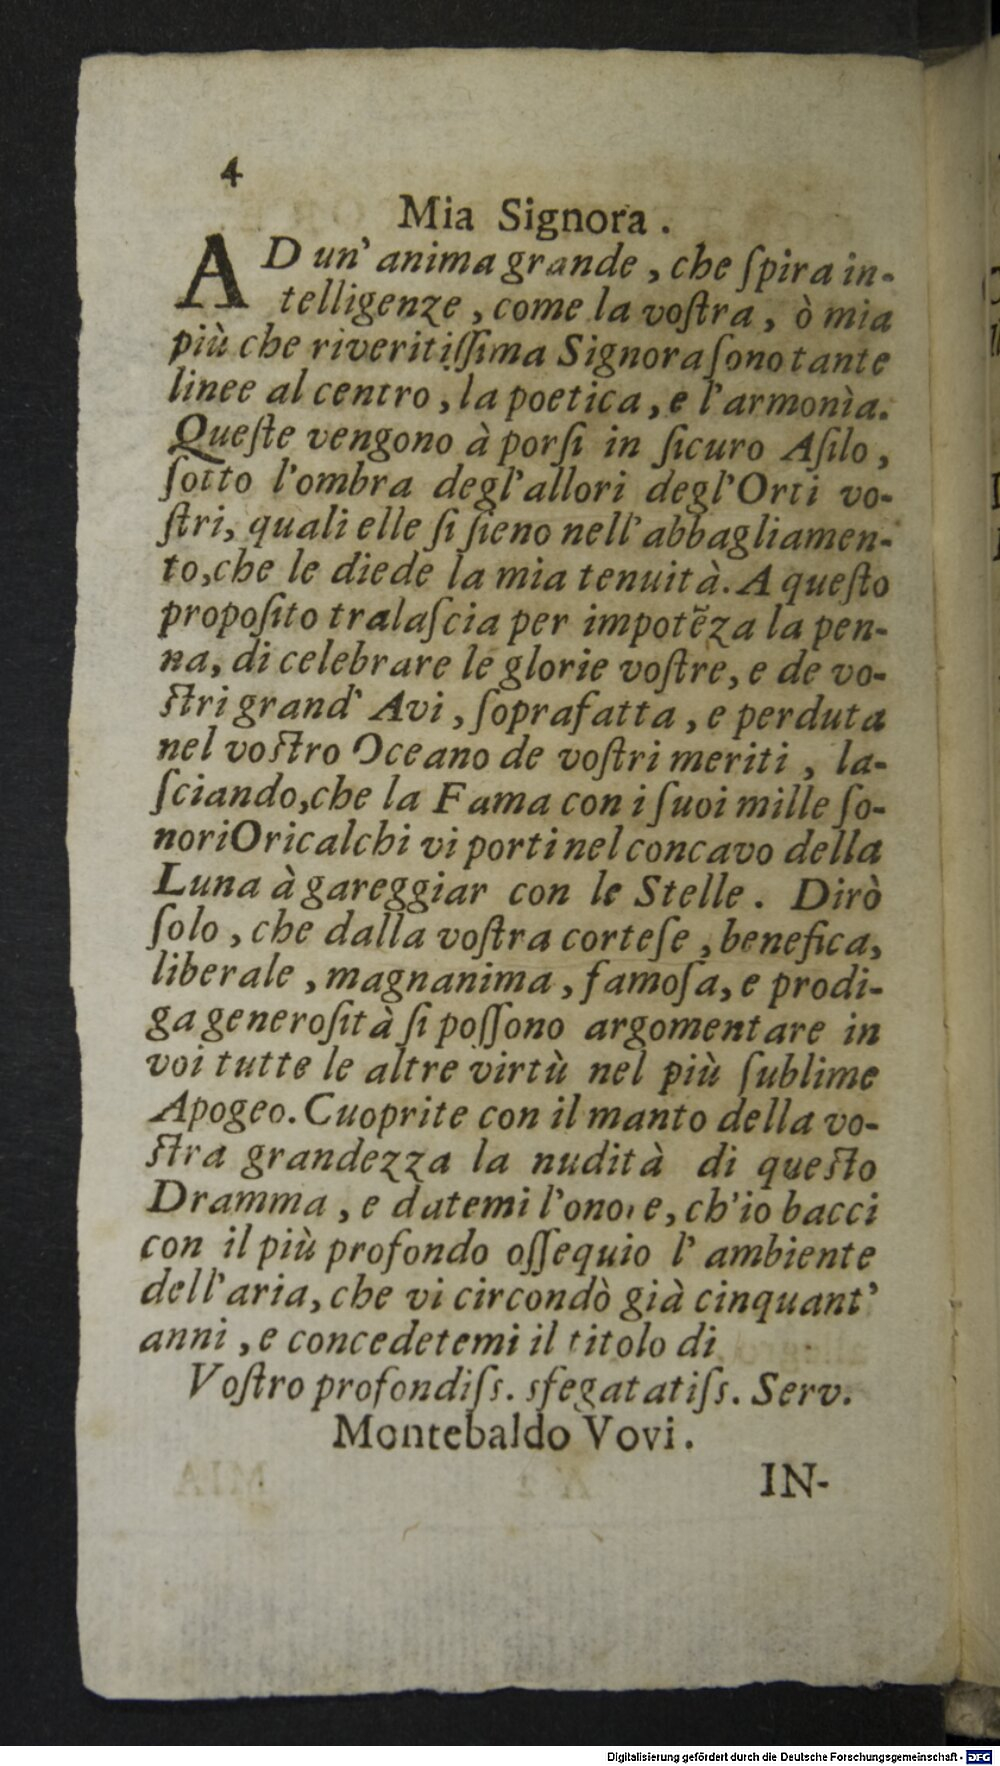 4
Mia Signora.
AD un' anima grande, che ſpira in-
telligenze, come la voſtra, ò mia
più che riveritiſſima Signora ſono tante
linee al centro, la poetica, e l'armonìa.
Queſte vengono à porſi in ſicuro Aſilo,
ſotto l'ombra degl'allori degl'Orti vo-
ſtri, quali elle ſi ſieno nell'abbagliamen-
to, che le diede la mia tenuità. A queſto
propoſito tralaſcia per impotẽza la pen-
na, di celebrare le glorie voſtre, e de vo-
ſtri grand' Avi, ſoprafatta, e perduta
nel voſtro Oceano de voſtri meriti, la-
ſciando, che la Fama con i ſuoi mille ſo-
nori Oricalchi vi porti nel concavo della
Luna à gareggiar con le Stelle. Dirò
ſolo, che dalla voſtra corteſe, benefica,
liberale, magnanima, famoſa, e prodi-
ga generoſità ſi poſſono argomentare in
voi tutte le altre virtù nel più ſublime
Apogeo. Cuoprite con il manto della vo-
ſtra grandezza la nudità di queſto
Dramma, e datemi l'onore, ch'io bacci
con il più profondo oſſequio l' ambiente
dell'aria, che vi circondò già cinquant'
anni, e concedetemi il titolo di
Voſtro profondiſs. sfegatatiſs. Serv.
Montebaldo Vovi.
IN-
Digitalisierung gefördert durch die Deutsche Forschungsgemeinschaft - DFG